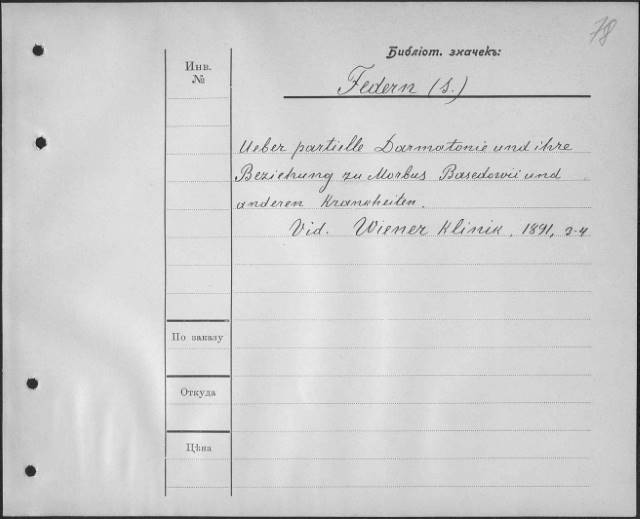 78
Библіот. значекъ:
Инв.
№
Federn (S.)
Ueber partielle Darmatonie und ihre
Beziehung zu Morbus Basedowii und
anderen Krankheiten.
Vid. Wiener Klinik, 1891, 3-4
По заказу
Откуда
Цѣна